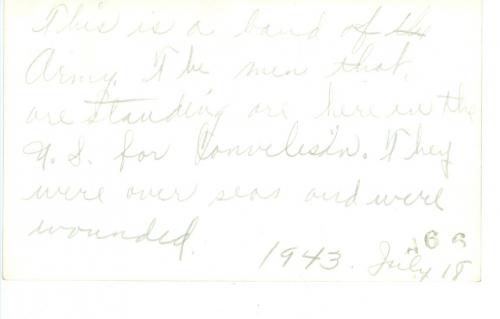 This is a band of the
Army. The men that
are standing are here in the
U. S. for Convelesin. They
were over seas and were
wounded.
1943. July 18